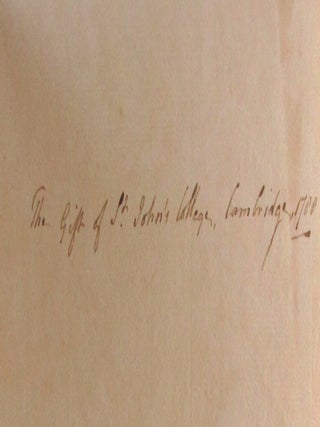 The Gift of St. John's College, Cambridge, 1700